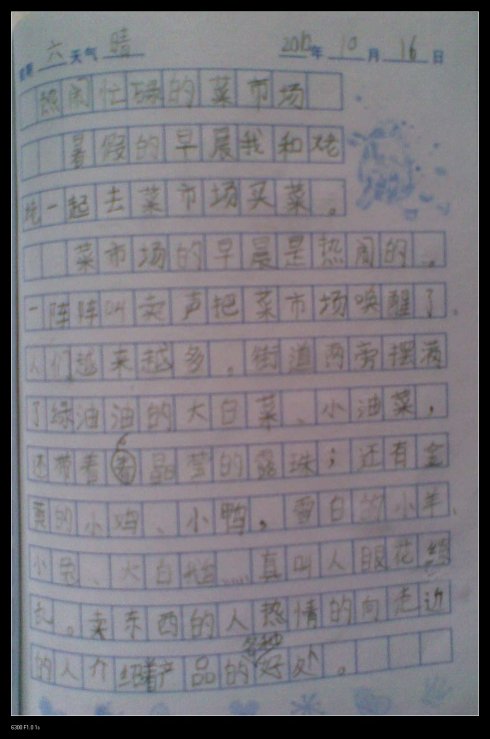 六 天气 晴 2010年 10月 16日
热闹忙碌的菜市场
暑假的早晨我和姥
姥一起去菜市场买菜。
菜市场的早晨是热闹的。
一阵阵叫卖声把菜市场唤醒了。
人们越来越多。街道两旁摆满
了绿油油的大白菜、小油菜,
还带着晶莹的露珠;还有金
黄的小鸡、小鸭,雪白的小羊、
小兔、大白……真叫人眼花缭
乱。卖东西的人热情的向走近
的人介绍着产品的各种好处。
6300.F1.0 1s